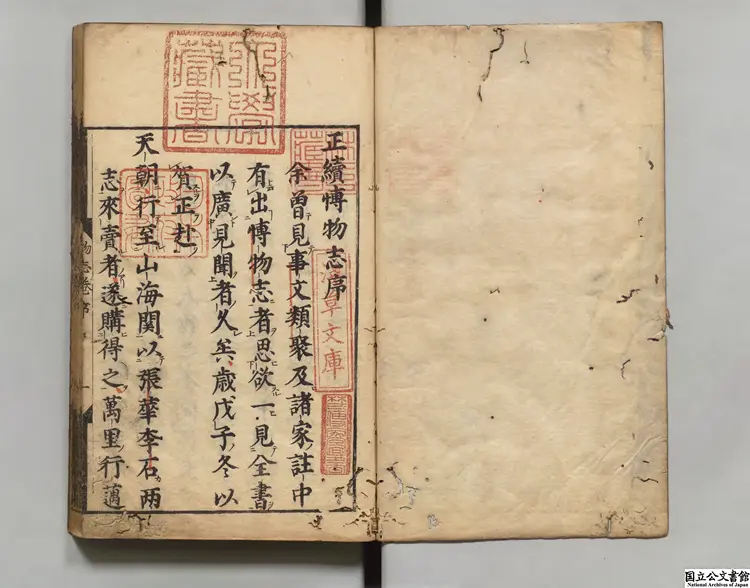 正續博物志序
余曾見事文類聚及諸家註中
有出博物志者思欲一見全書
以廣見聞者久矣歳戊子冬以
賀正赴
天朝行至山海関以張華李石兩
志來賣者遂購得之萬里行邁
草文庫
藏書
国立公文書館
National Archives of Japan